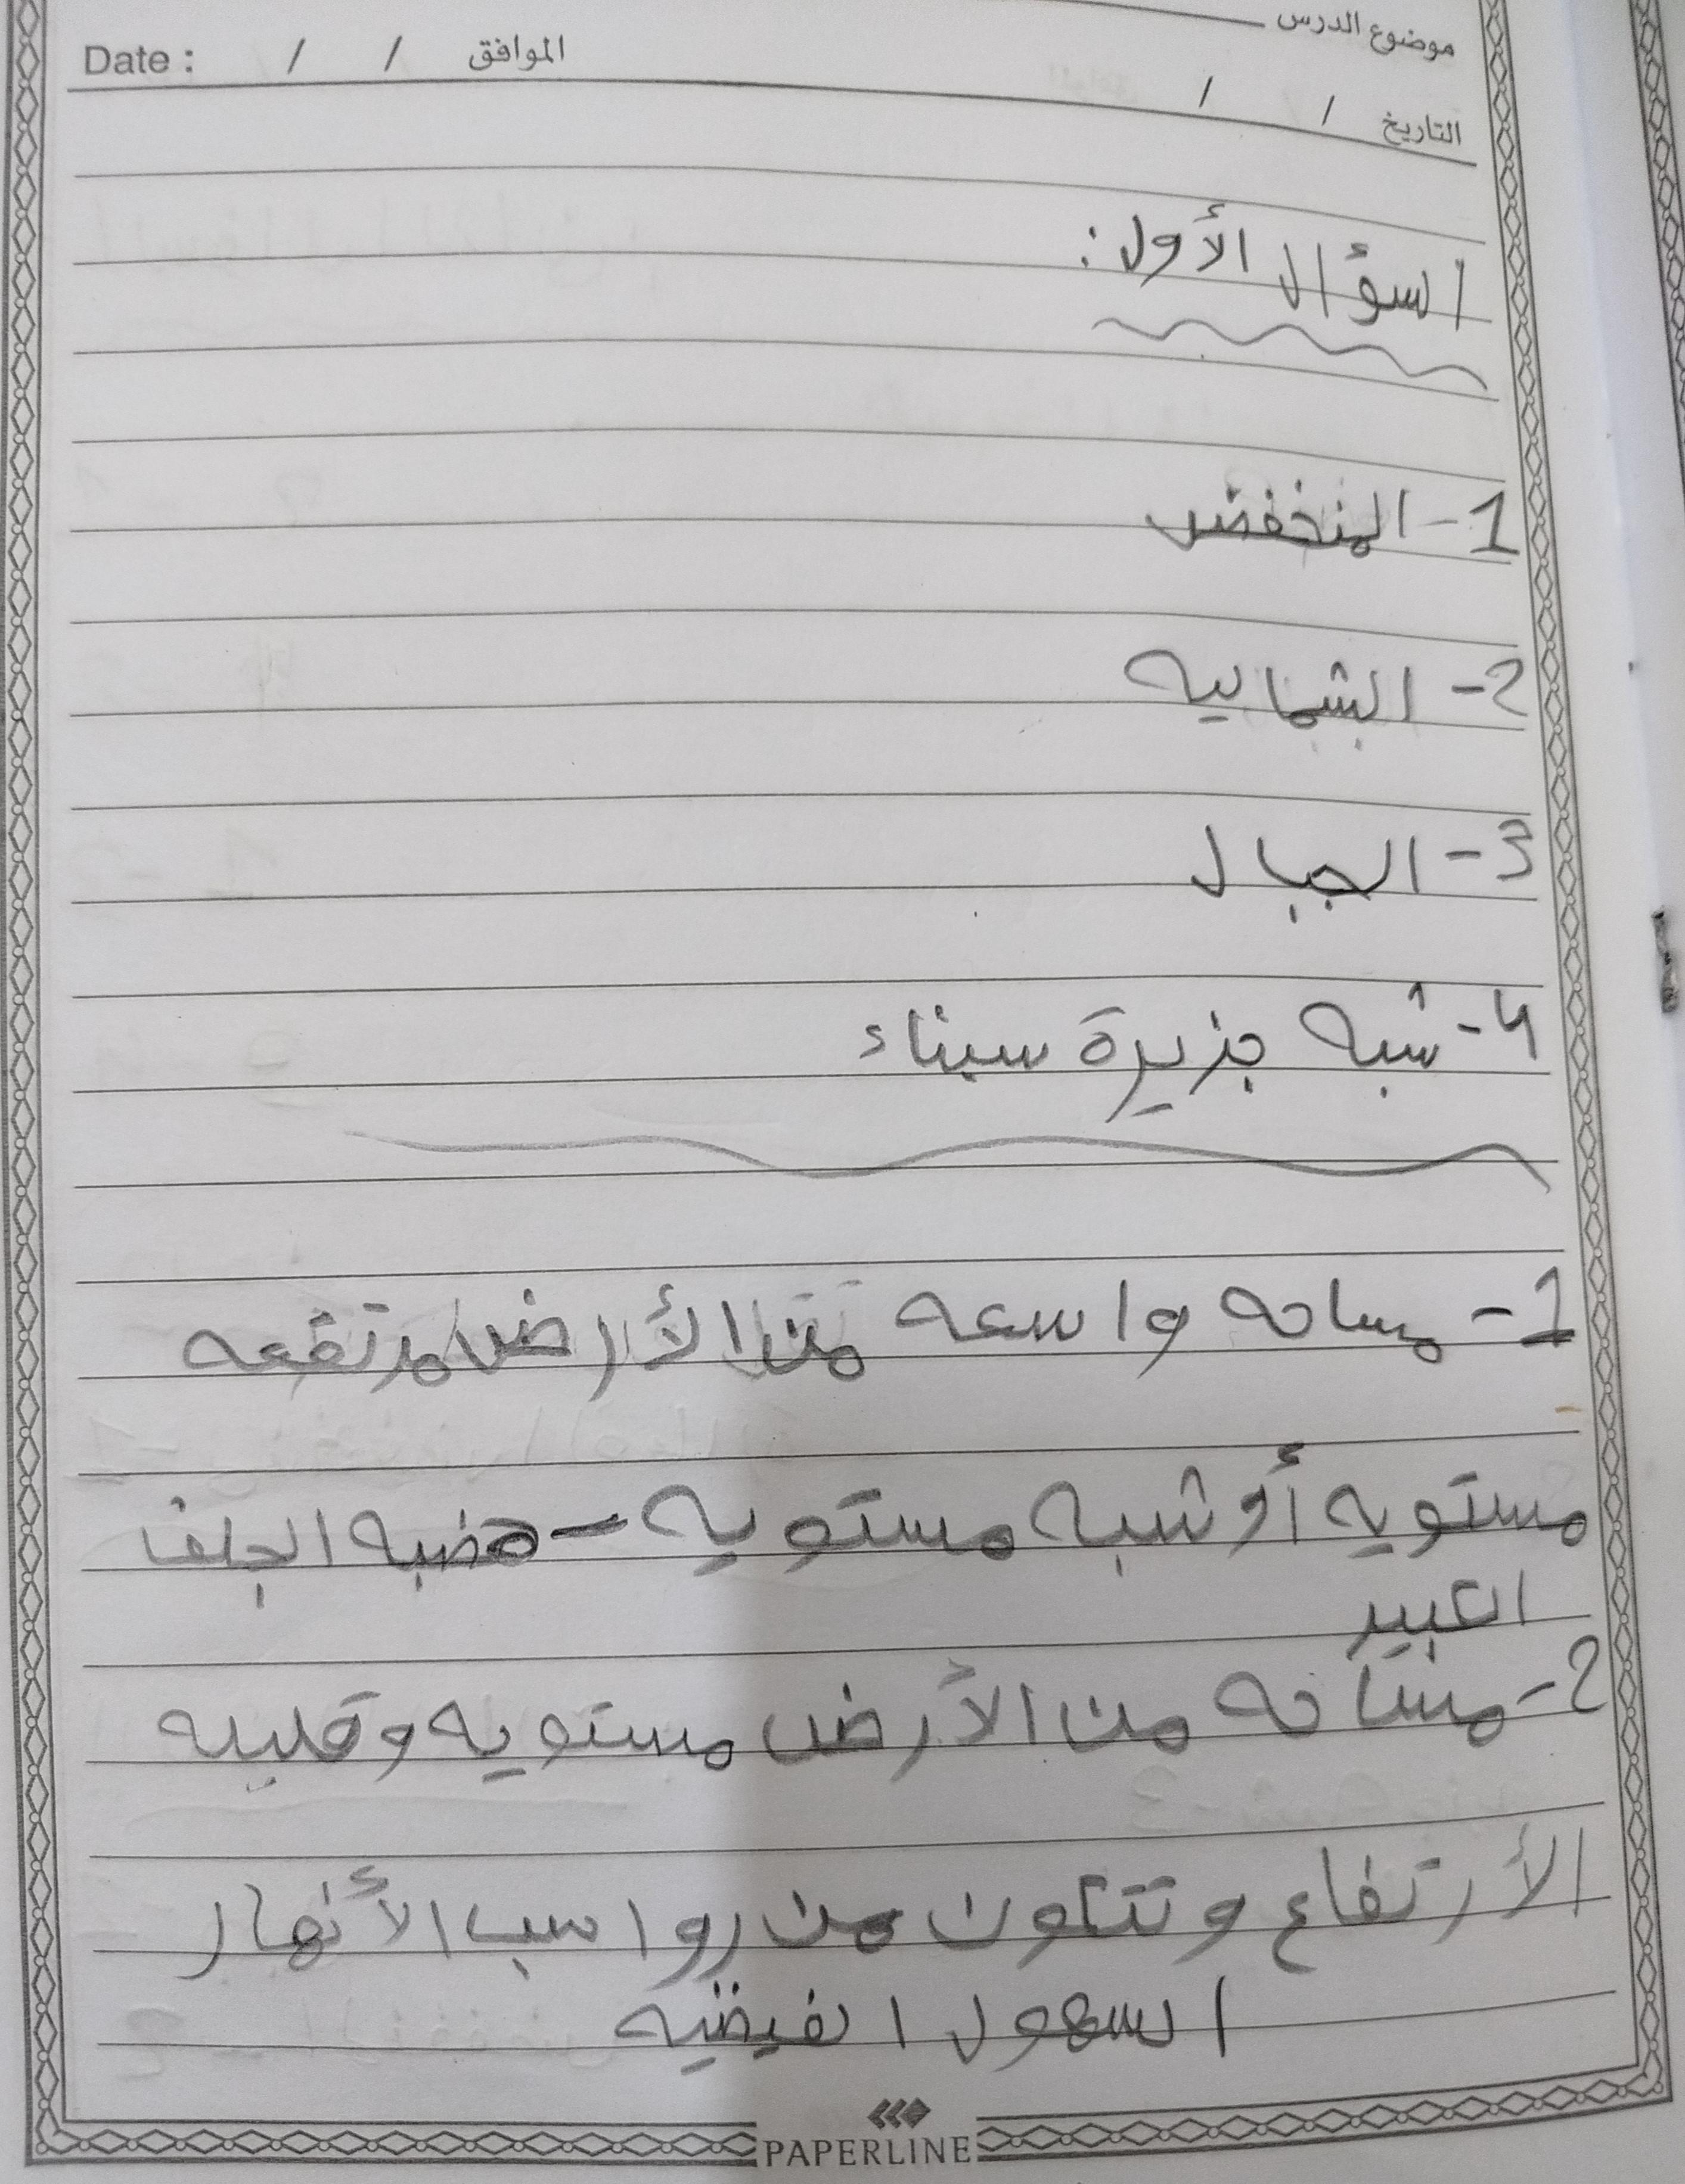 موضوع الدرس
Date : / / الموافق
التاريخ / /
السؤال الأول:
1- المنخفض
2- الشماليه
3- الجبال
4- شبه جزيرة سيناء
1- مساحه واسعه من الأرض مرتفعه
مستويه أو شبه مستويه - هضبه الجلف
الكبير
2- مساحه من الأرض مستويه وقليله
الأرتفاع وتتكون من رواسب الأنهار
السهول الفيضيه
PAPERLINE